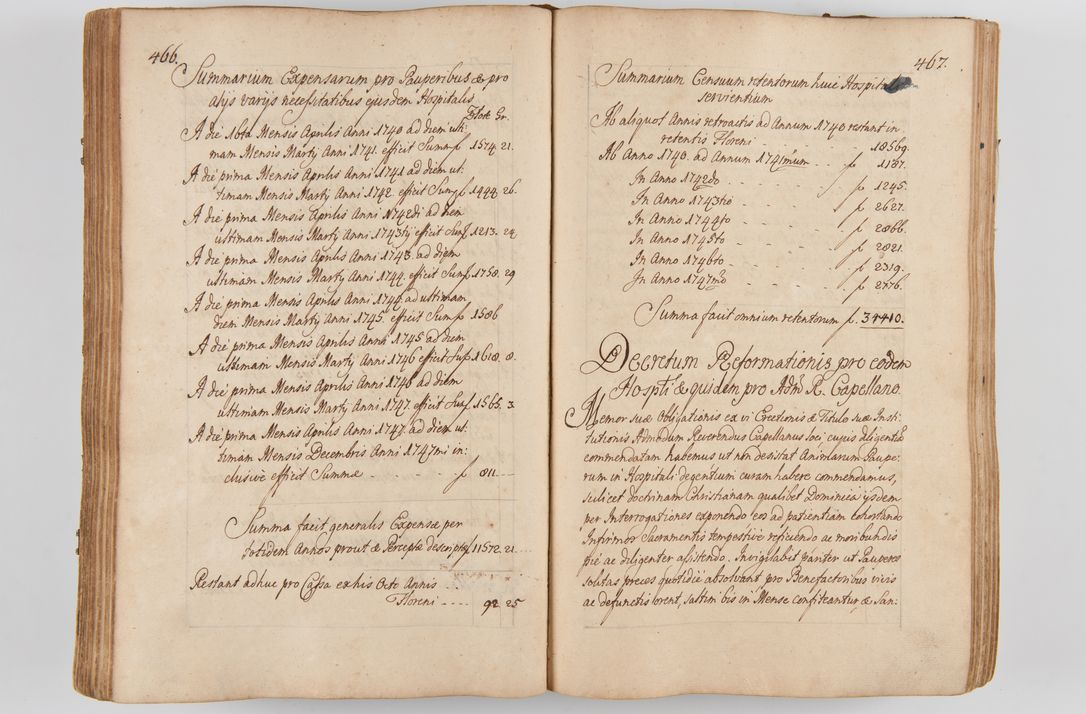 466.
Summarium Expensarum pro Pauperibus & pro
alijs varijs necessitatibus ejusdem Hospitalis
Flote Gr.
A die 16ta Mensis Aprilis Anni 1740 ad diem ulti-
mam Mensis Martij Anni 1741. efficit Summ f 1574. 21.
A die prima Mensis Aprilis Anni 1741 ad diem ul:
timam Mensis Martij Anni 1742. efficit Sum f 1444. 26.
A die prima Mensis Aprilis Anni 1742di ad diem
ultimam Mensis Martij Anni 1743tij efficit Sum f 1213. 24
A die prima Mensis Aprilis Anni 1743. ad diem
ultimam Mensis Martij Anni 1744. efficit Sum f 1758. 29
A die prima Mensis Aprilis Anni 1744. ad ultimam
diem Mensis Martij Anni 1745. efficit Sum f 1586
A die prima Mensis Aprilis Anni 1745 ad diem
ultimam Mensis Martij Anni 1746 efficit Su f 1618. 8.
A die prima Mensis Aprilis Anni 1746 ad diem
ultimam Mensis Martij Anni 1747. efficit Su f 1565. 3.
A die prima Mensis Aprilis Anni 1747. ad diem ul:
timam Mensis Decembris Anni 1747mi in:
clusive efficit Summæ - - - f 811. - -
Summa facit generalis Expensæ per
totidem Annos prout & Perceptæ descriptæ f 11572. 21.
Restant adhuc pro Cassa ex his Octo Annis - -
Floreni - - - - 92. 25
467.
Summarium Censuum retentorum huic Hospita
servientium
Ab aliquot Annis retroactis ad Annum 1740 restant in
retentis Floreni - - - - 18569.
Ab Anno 1740. ad Annum 1741mum - - - f 1187.
In Anno 1742do - - - - f 1245.
In Anno 1743tio - - - - f 2627.
In Anno 1744to - - - - f 2866.
In Anno 1745to - - - - f 2821.
In Anno 1746to - - - - f 2319.
In Anno 1747mo - - - - f 2776.
Summa facit omnium retentorum f. 34410.
Decretum Reformationis pro eodem
Hospti & quidem pro Adm R. Capellano.
Memor suæ Obligationis ex vi Erectionis & Titulo suæ Insti-
tutionis Admodum Reverendus Capellanus loci, cujus diligentiã
commendatam habemus ut non desistat Animarum Paupe-
rum in Hospitali degentium curam habere commendamus,
scilicet doctrinam Christianam qualibet Dominicâ ijsdem
per Interrogationes exponendo eos ad patientiam cohortando
Infirmos Sacramentis tempestive reficiendo ac moribundis
piè ac diligenter assistendo. Invigilabit pariter ut Pauperes
solitas preces quotidiè absolvant pro Benefactoribus vivis
ac defunctis orent, saltim bis in Mense confiteantur & San: